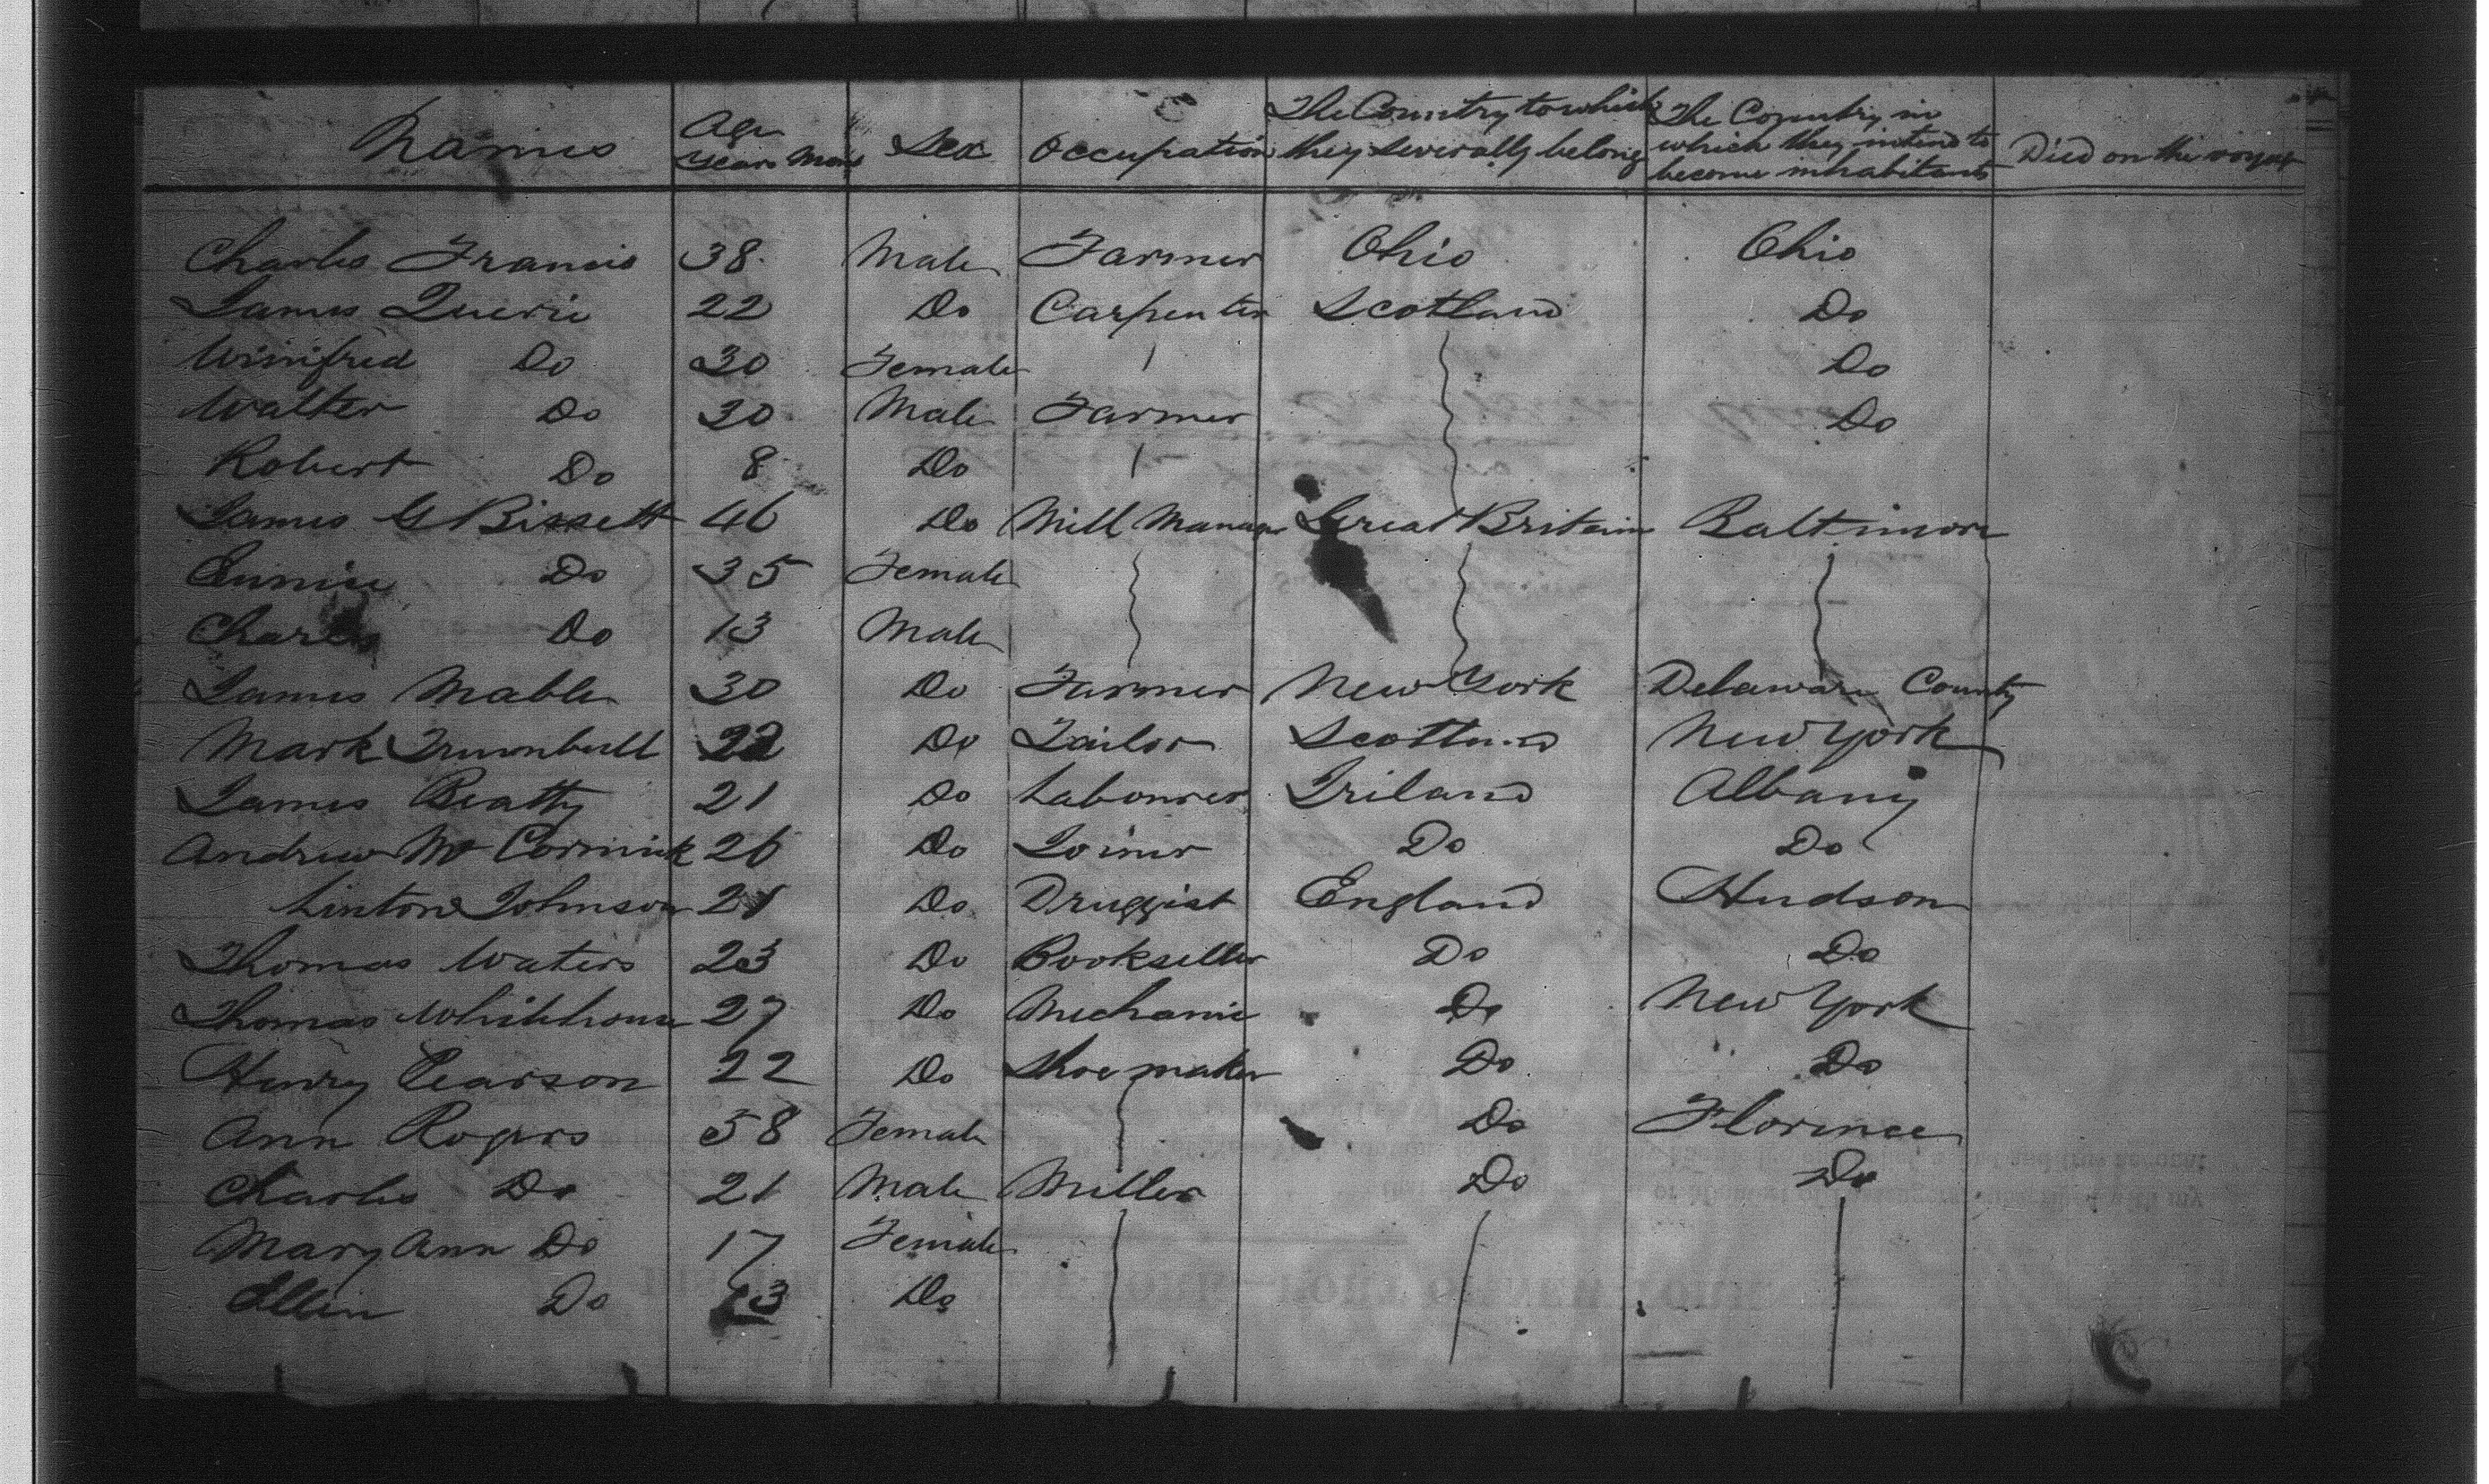 Names Age Years Mons Sex Occupation The Country to which they severally belong The Country in which they intend to become inhabitants Died on the voyage
Charles Francis 38 Male Farmer Ohio Ohio
James Querie 22 Do Carpenter Scotland Do
Winifred Do 30 Female Do
Walter Do 30 Male Farmer Do
Robert Do 8 Do
James G Bissett 46 Do Mill Manager Great Britain Baltimore
Eunice Do 35 Female
Charles Do 13 Male
James Mable 30 Do Farmer New York Delaware County
Mark Trumbull 22 Do Tailor Scotland New York
James Beatty 21 Do Labourer Ireland Albany
Andrew Mc Cormick 26 Do Joiner Do Do
Linton Johnson 21 Do Druggist England Hudson
Thomas Waters 23 Do Bookseller Do Do
Thomas Whitehouse 27 Do Mechanic Do New York
Henry Pearson 22 Do Shoemaker Do Do
Ann Rogers 58 Female Do Florence
Charles Do 21 Male Miller Do Do
Mary Ann Do 17 Female
Ellin Do 13 Do